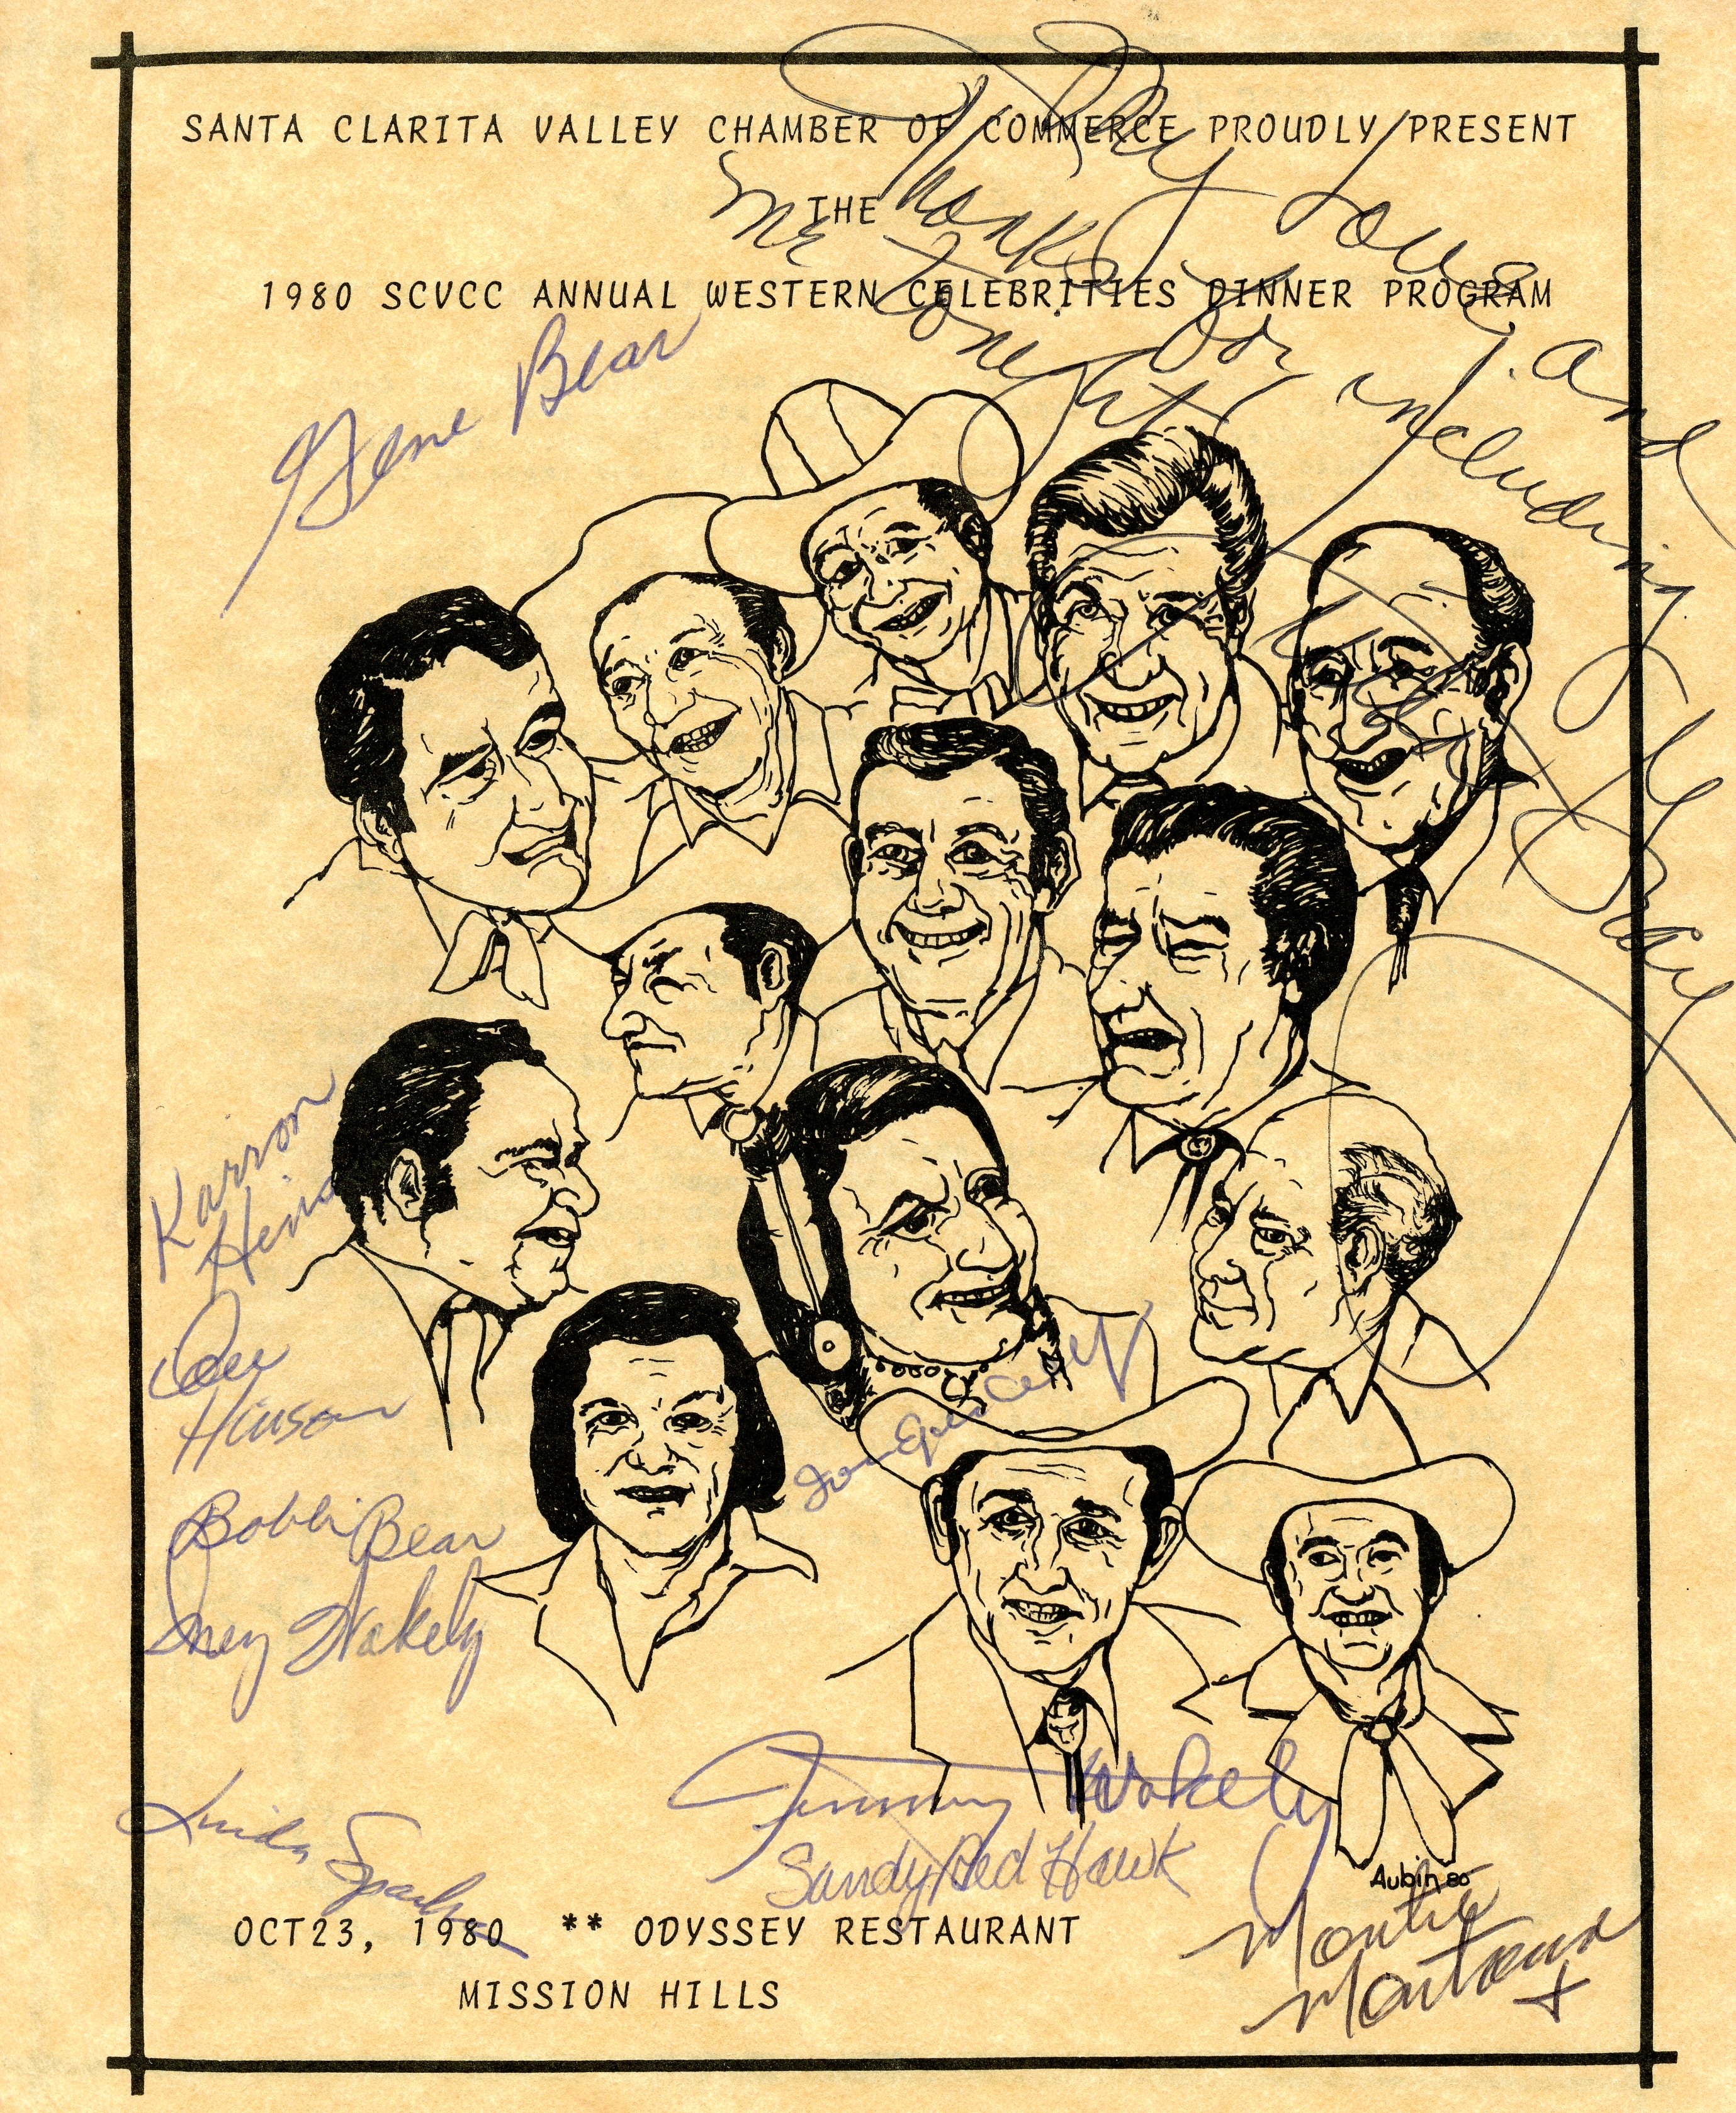 SANTA CLARITA VALLEY CHAMBER OF COMMERCE PROUDLY PRESENT
THE
1980 SCVCC ANNUAL WESTERN CELEBRITIES DINNER PROGRAM
Thanks
for including
me tonight
Gene Bear
Karron
Dee
Hinson
Bobbi Bear
Inez Wakely
Linda
Jimmy Wakely
Sandy Red Hawk
Aubin 80
Montie
Montana
OCT23, 1980 ** ODYSSEY RESTAURANT
MISSION HILLS